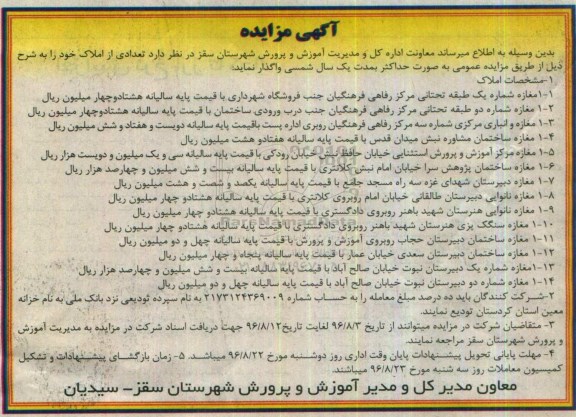 آگهی مزایده
بدین وسیله به اطلاع میرساند معاونت اداره کل و مدیریت آموزش و پرورش شهرستان سقز در نظر دارد تعدادی از املاک خود را به شرح
ذیل از طریق مزایده عمومی به صورت حداکثر بمدت یک سال شمسی واگذار نماید:
۱-مشخصات املاک
۱-۱ مغازه شماره یک طبقه تحتانی مرکز رفاهی فرهنگیان جنب فروشگاه شهرداری با قیمت پایه سالیانه هشتادوچهار میلیون ریال
۱-۲ مغازه شماره دو طبقه تحتانی مرکز رفاهی فرهنگیان جنب درب ورودی ساختمان با قیمت پایه سالیانه هشتادوچهار میلیون ریال
۱-۳ مغازه و انباری مرکزی شماره سه مرکز رفاهی فرهنگیان روبری اداره پست باقیمت پایه سالیانه دویست و هفتاد و شش میلیون ریال
۱-۴ مغازه ساختمان مشاوره نبش میدان قدس با قیمت پایه سالیانه هفتادو هشت میلیون ریال
۱-۵ مغازه مرکز آموزش و پرورش استثنایی خیابان حافظ نبش خیابان رودکی با قیمت پایه سالیانه سی و یک میلیون و دویست هزار ریال
۱-۶ مغازه ساختمان پژوهش سرا خیابان امام نبش کلانتری با قیمت پایه سالیانه بیست و شش میلیون و چهارصد هزار ریال
۱-۷ مغازه دبیرستان شهدای غزه سه راه مسجد جامع با قیمت پایه سالیانه یکصد و شصت و هشت میلیون ریال
۱-۸ مغازه نانوایی دبیرستان طالقانی خیابان امام روبروی کلانتری با قیمت پایه سالیانه هشتادو چهار میلیون ریال
۱-۹ مغازه نانوایی هنرستان شهید باهنر روبروی دادگستری با قیمت پایه سالیانه هشتادو چهار میلیون ریال
۱-۱۰ مغازه سنگک پزی هنرستان شهید باهنر روبروی دادگستری با قیمت پایه سالیانه هشتادو چهار میلیون ریال
۱-۱۱ مغازه ساختمان دبیرستان حجاب روبروی آموزش و پرورش با قیمت پایه سالیانه چهل و دو میلیون ریال
۱-۱۲ مغازه ساختمان دبیرستان سعدی خیابان عمار با قیمت پایه سالیانه پنجاه و چهار میلیون ریال
۱-۱۳ مغازه شماره یک دبیرستان نبوت خیابان صالح آباد با قیمت پایه سالیانه بیست و شش میلیون و چهارصد هزار ریال
۱-۱۴ مغازه شماره دو دبیرستان نبوت خیابان صالح آباد با قیمت پایه سالیانه چهل و دو میلیون ریال
۲-شرکت کنندگان باید ده درصد مبلغ معامله را به حساب شماره ۲۱۷۳۱۲۴۳۶۹۰۰۹ به نام سپرده تودیعی نزد بانک ملی به نام خزانه
معین استان کردستان تودیع نمایند.
۳- متقاضیان شرکت در مزایده میتوانند از تاریخ ۹۶/۸/۳ لغایت تاریخ۹۶/۸/۱۲ جهت دریافت اسناد شرکت در مزایده به مدیریت آموزش
و پرورش شهرستان سقز مراجعه نمایند.
۴- مهلت پایانی تحویل پیشنهادات پایان وقت اداری روز دوشنبه مورخ ۹۶/۸/۲۲ میباشد. ۵- زمان بازگشای پیشنهادات و تشکیل
کمیسیون معاملات روز سه شنبه مورخ ۹۶/۸/۲۳ میباشند.
معاون مدیر کل و مدیر آموزش و پرورش شهرستان سقز- سیدیان